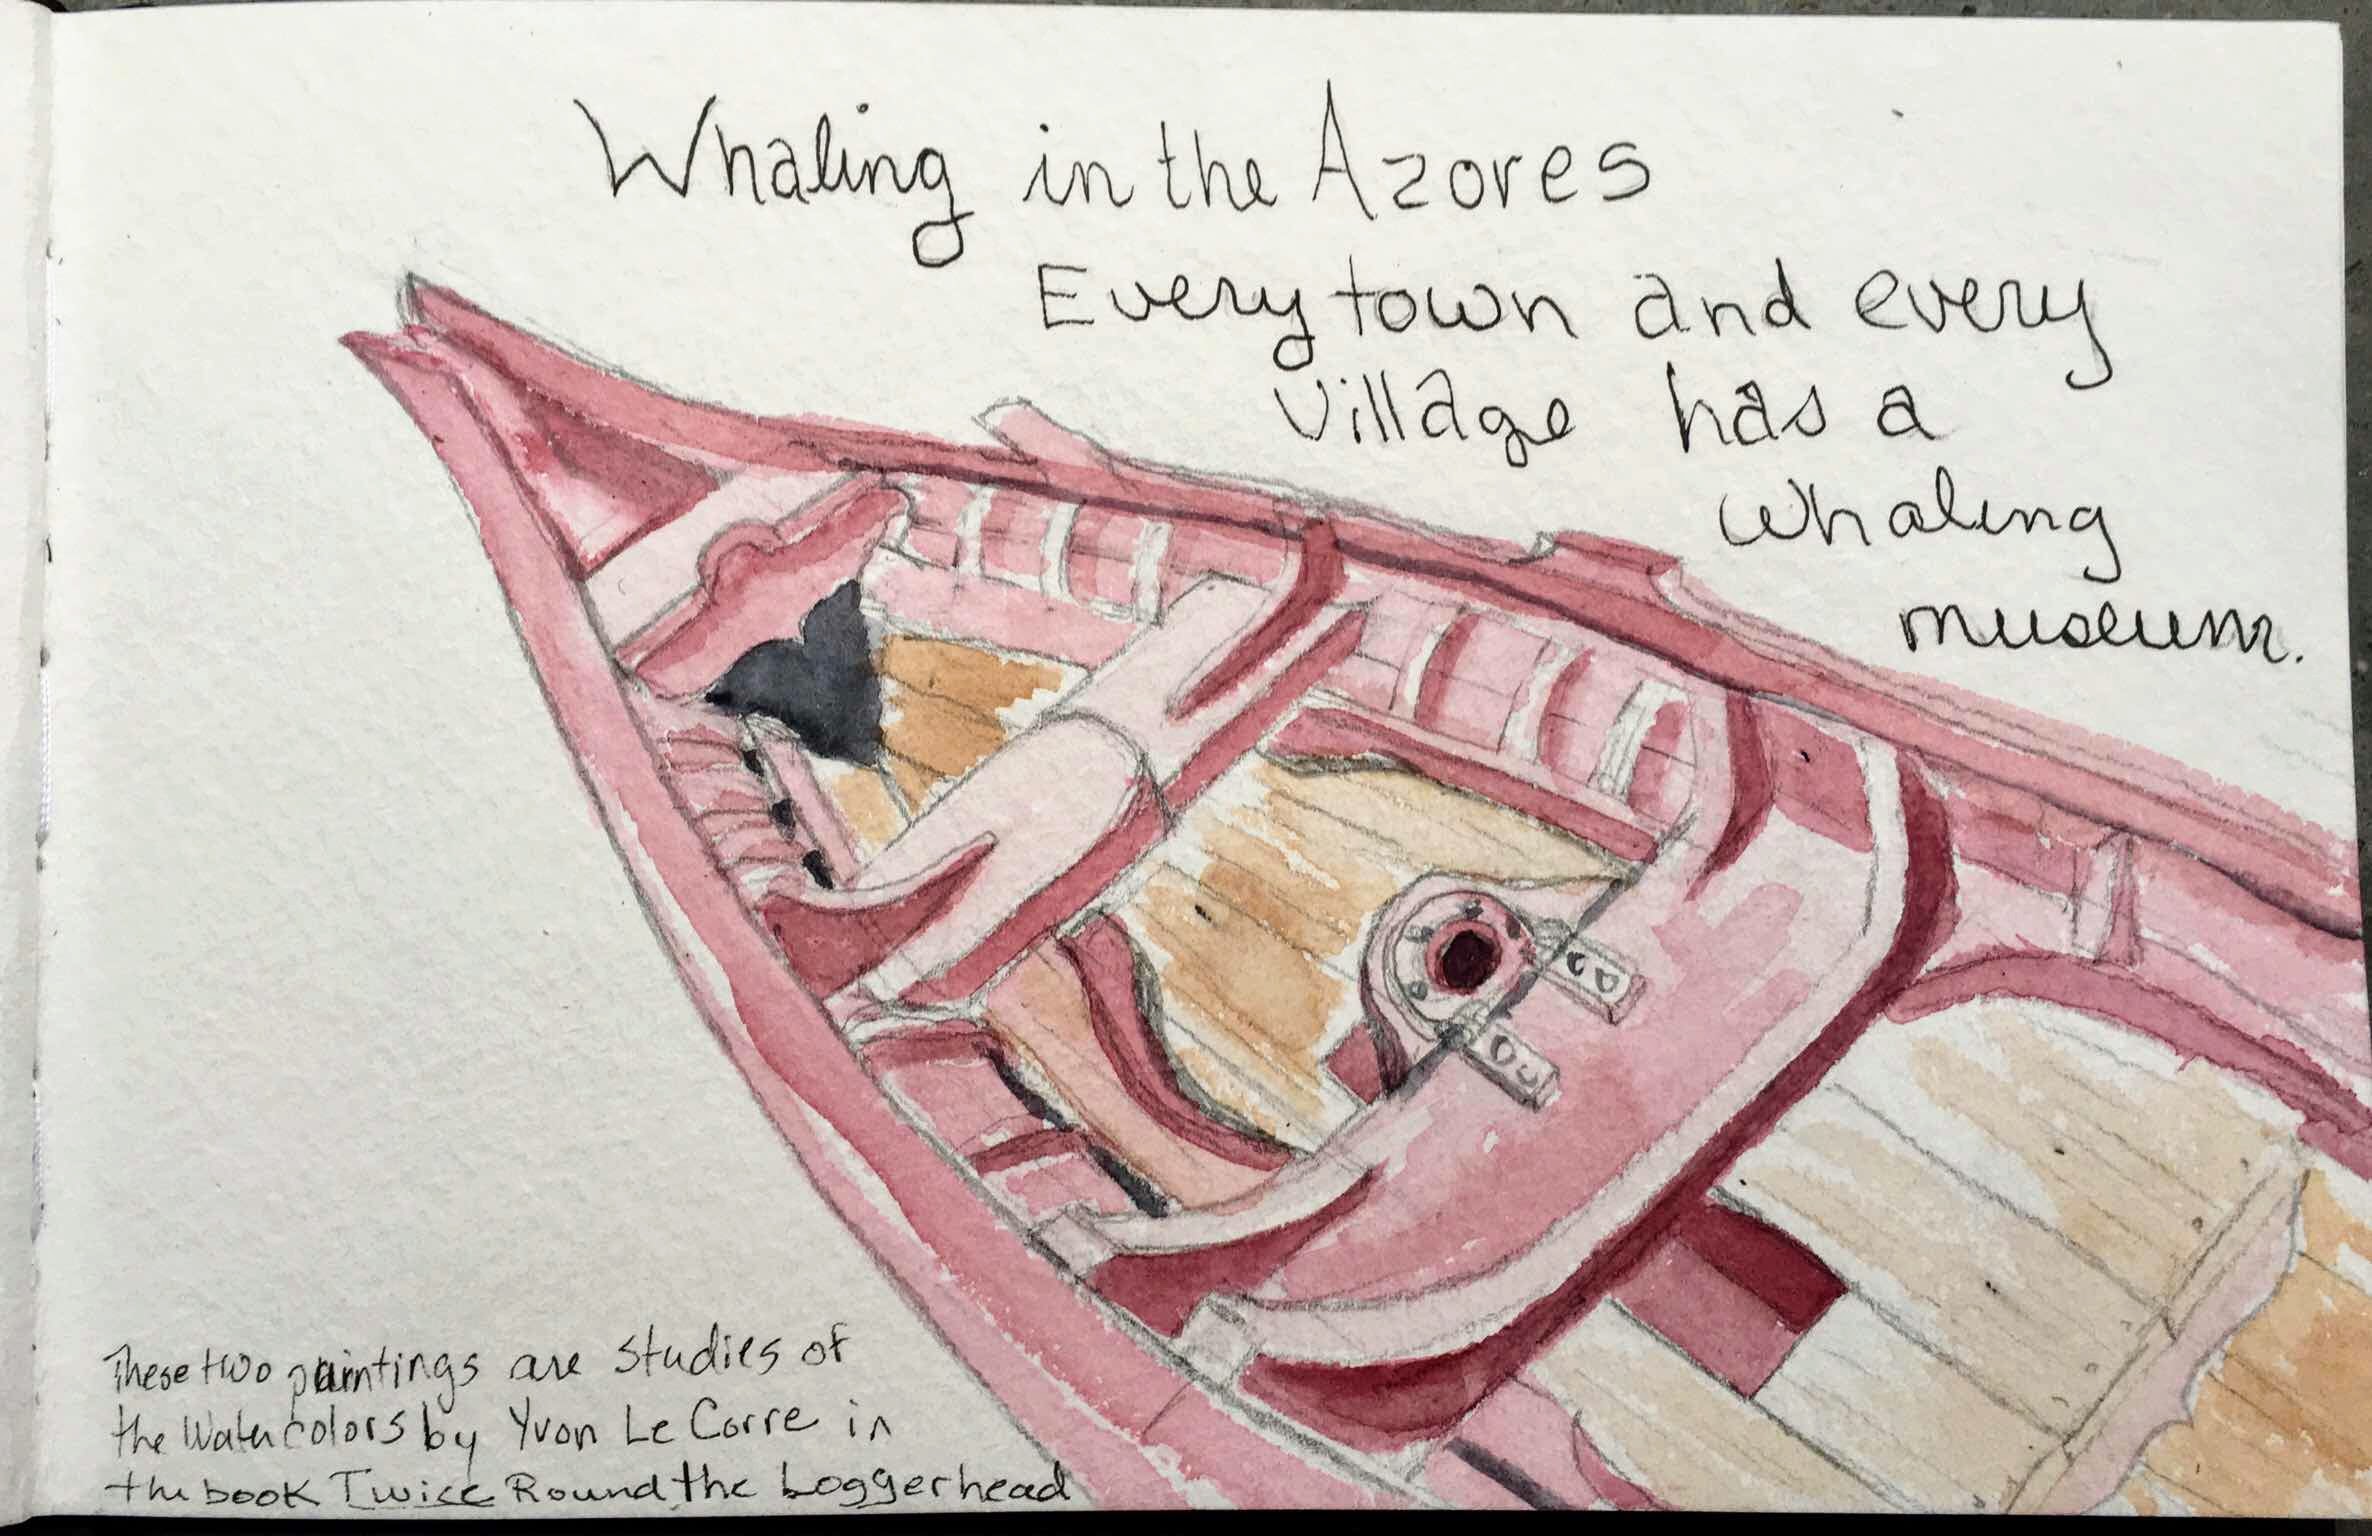 Whaling in the Azores
Every town and every
Village has a
Whaling
museum.
These two paintings are studies of
the Watercolors by Yvon Le Corre in
the book Twice Round the Loggerhead